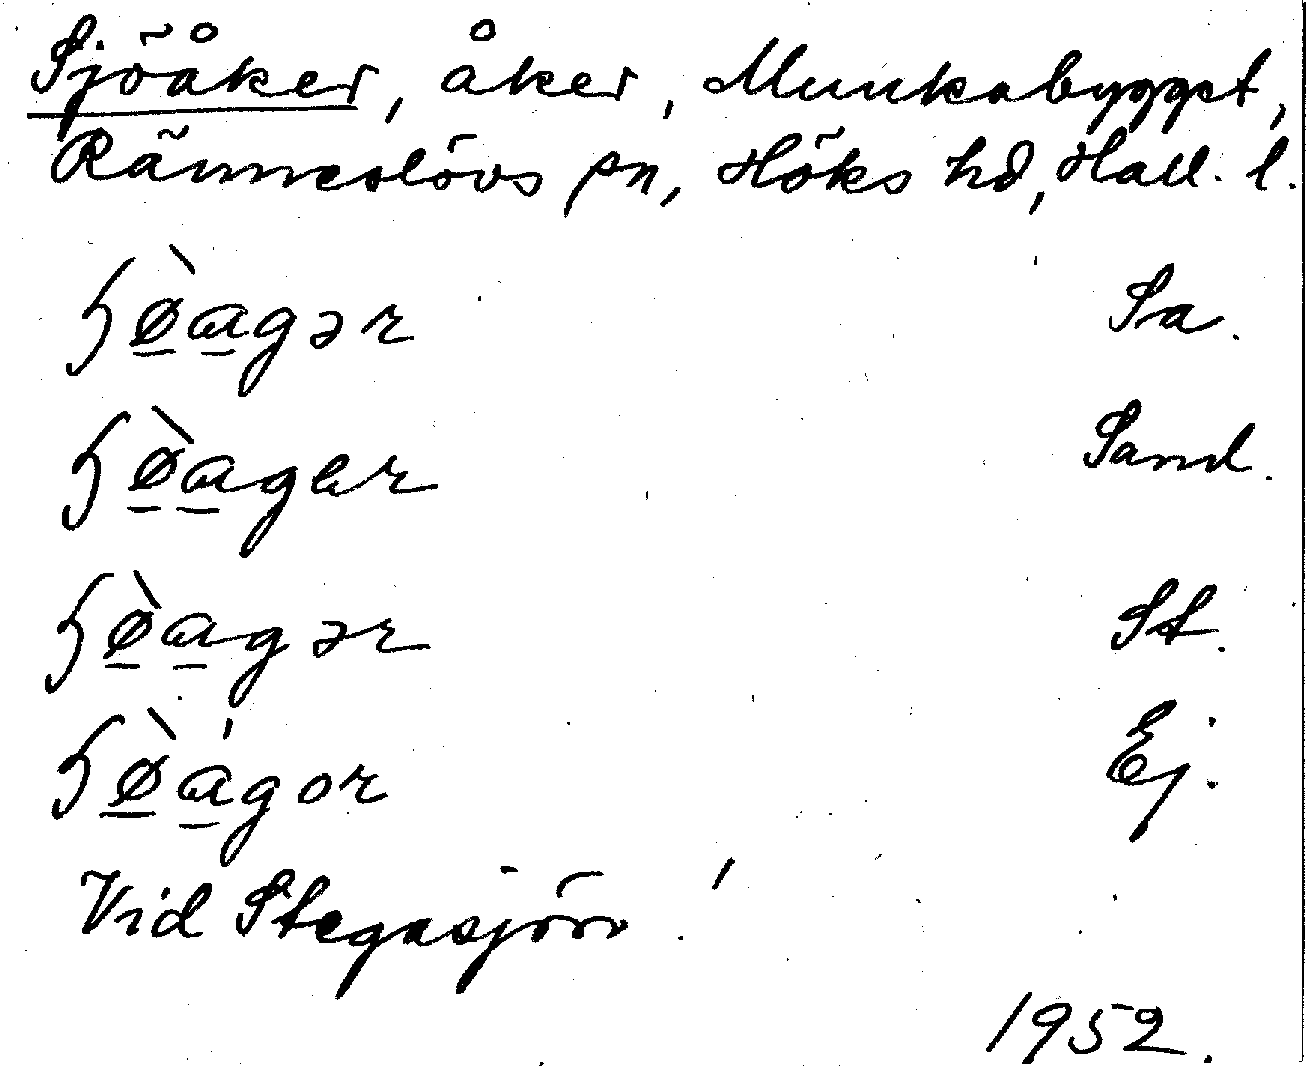 Sjöåker, åker, Munkabygget,
Ränneslövs sn, Höks hd, Hall. l.
ɧø̀agər Sa.
ɧø̀agər Sand.
ɧø̀agər St.
ɧø̀ágor Ej.
Vid Stegasjön.
1952.